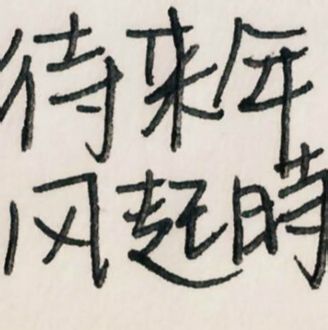 待来年
风起時